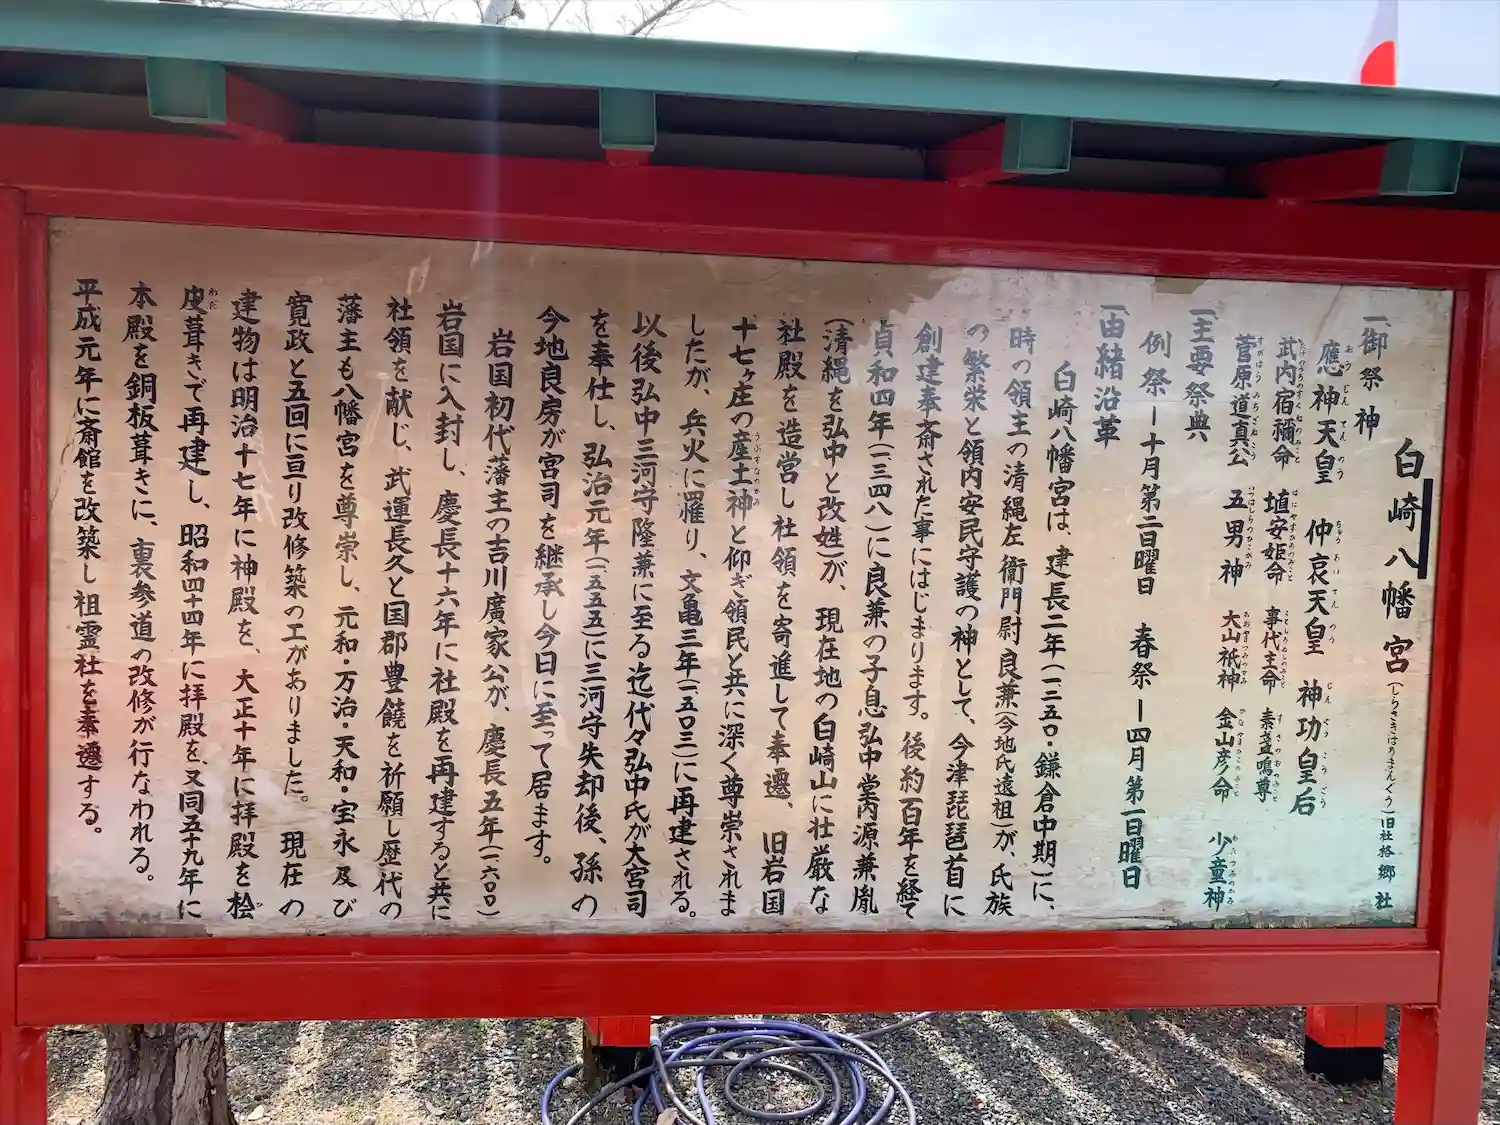 白崎八幡宮(しらさきはちまんぐう)旧社格郷社
一御祭神
應神天皇 仲哀天皇 神功皇后
武内宿禰命 埴安姫命 事代主命 素盞嗚尊
菅原道真公 五男神 大山祇神 金山彦命 少童神
一主要祭典
例祭ー十月第二日曜日 春祭ー四月第一日曜日
一由緒沿革
白崎八幡宮は、建長二年(一二五〇・鎌倉中期)に、
時の領主の清縄左衛門尉良兼(今地氏遠祖)が、氏族
の繁栄と領内安民守護の神として、今津琵琶首に
創建奉斎された事にはじまります。後約百年を経て
貞和四年(一三四八)に良兼の子息弘中堂内源兼胤
(清縄を弘中と改姓)が、現在地の白崎山に壮厳な
社殿を造営し社領を寄進して奉遷、旧岩国
十七ヶ庄の産土神と仰ぎ領民と共に深く尊崇されま
したが、兵火に罹り、文亀三年(一五〇三)に再建される。
以後弘中三河守隆兼に至る迄代々弘中氏が大宮司
を奉仕し、弘治元年(一五五五)に三河守失却後、孫の
今地良房が宮司を継承し今日に至って居ます。
岩国初代藩主の吉川廣家公が、慶長五年(一六〇〇)
岩国に入封し、慶長十六年に社殿を再建すると共に
社領を献じ、武運長久と国郡豊饒を祈願し歴代の
藩主も八幡宮を尊崇し、元和・万治・天和・宝永及び
寛政と五回に亘り改修築の工がありました。現在の
建物は明治十七年に神殿を、大正十年に拝殿を桧
皮葺きで再建し、昭和四十四年に拝殿を、又同五十九年に
本殿を銅板葺きに、裏参道の改修が行なわれる。
平成元年に斎館を改築し祖霊社を奉遷する。